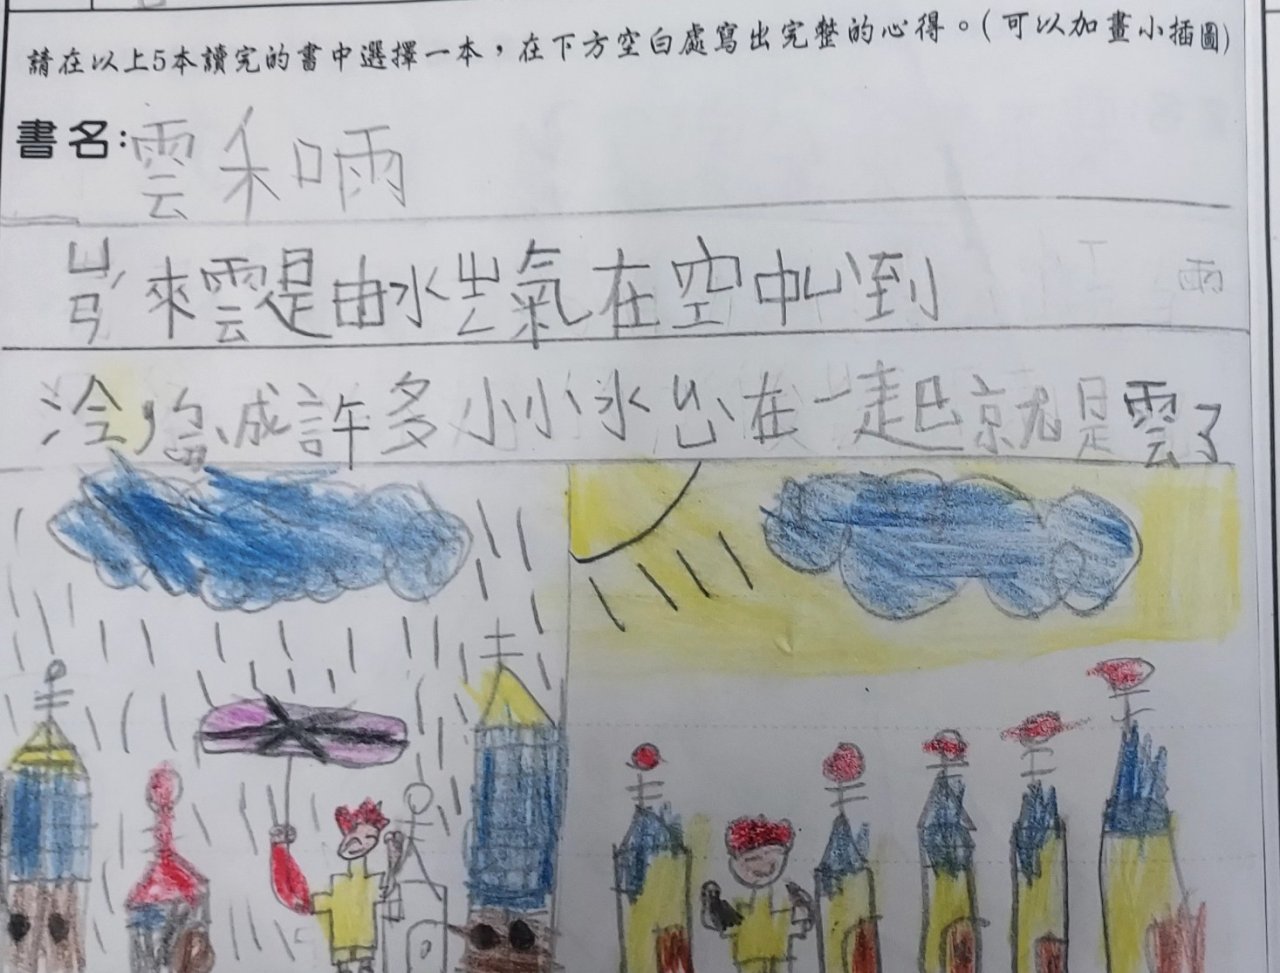 請在以上5本讀完的書中選擇一本，在下方空白處寫出完整的心得。(可以加畫小插圖)
書名：雲和雨
ㄩㄢˊ來雲是由水ㄓㄥ氣在空中ㄩˋ到
冷，ㄋㄧㄥˊ成許多小小水ㄉㄧ在一起就是雲了
雨